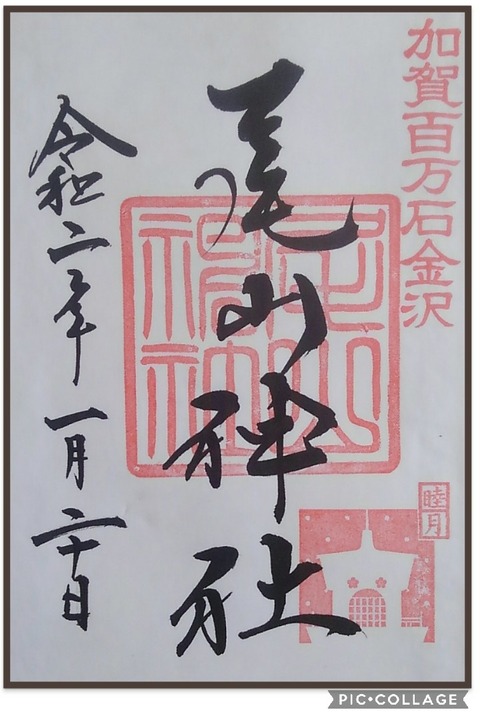 加賀百万石金沢
尾山神社
尾山神社
睦月
令和二年一月二十日
PIC•COLLAGE